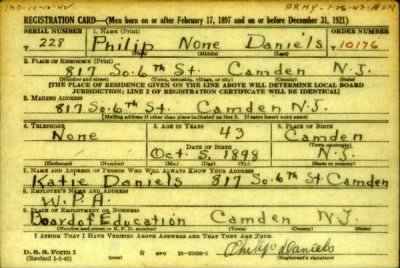 REGISTRATION CARD—(Men born on or after February 17, 1897 and on or before December 31, 1921.)
SERIAL NUMBER 1. NAME (Print) ORDER NUMBER
228 Philip None Daniels 10176
(First) (Middle) (Last)
2. PLACE OF RESIDENCE (Print)
817 So. 6th St. Camden N.J.
(Number and street) (Town, township, village, or city) (County) (State)
[THE PLACE OF RESIDENCE GIVEN ON THE LINE ABOVE WILL DETERMINE LOCAL BOARD
JURISDICTION; LINE 2 OF REGISTRATION CERTIFICATE WILL BE IDENTICAL]
3. MAILING ADDRESS
817 So. 6th St. Camden N.J.
[Mailing address if other than place indicated on line 2. If same insert word same]
4. TELEPHONE 5. AGE IN YEARS 6. PLACE OF BIRTH
None 43 Camden
DATE OF BIRTH (Town or county)
Oct 5, 1898 N.J.
(Exchange) (Number) (Mo.) (Day) (Yr.) (State or country)
7. NAME AND ADDRESS OF PERSON WHO WILL ALWAYS KNOW YOUR ADDRESS
Katie Daniels 817 So. 6th St. Camden
8. EMPLOYER'S NAME AND ADDRESS
W.P.A.
9. PLACE OF EMPLOYMENT OR BUSINESS
Board of Education Camden N.J.
(Number and street or R. F. D. number) (Town) (County) (State)
I AFFIRM THAT I HAVE VERIFIED ABOVE ANSWERS AND THAT THEY ARE TRUE.
D. S. S. Form 1 Philip Daniels
(Revised 1-1-42) (Registrant's signature)